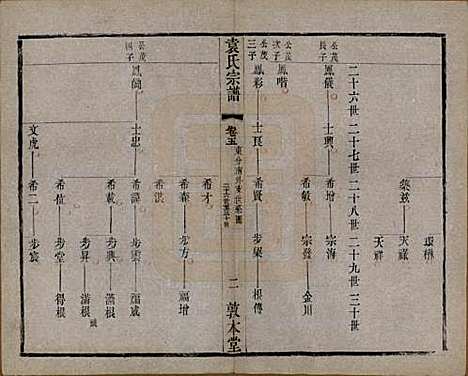 環樹
築玆 天祿
天祥
二十六世 二十七世 二十八世 二十九世 三十世
公茂長子 鳳儀 士興 希增 宗海
希敏 宗發 金川
公茂次子 鳳喈
公茂三子 鳳彩 士良 希賢 步榮 根傳
袁氏宗譜 卷五 二 敦本堂
希才
希森 步方 福增
希洪
公茂四子 鳳 士忠 希謨 步雲 福成
希載 步傑 滿根
步昇 滿根
希位 步堂 得根
文虎 希二 步宸